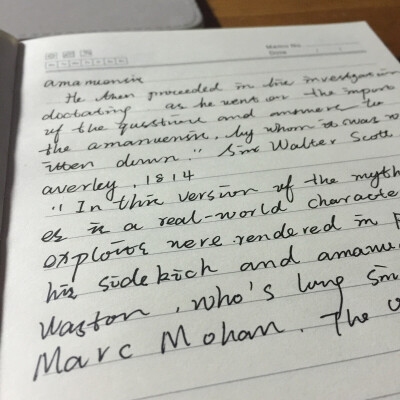 Memo No.
Date / /
amanuensis
He then proceeded in his investigation
doctating as he went on the impor
of the question and answers to
the amanuensis, by whom it was w
itten down." Sire Walter Scott
averley, 1814
"In this version of the myth
es is a real-world characte
exploits were rendered in p
his sidekich and amanu
Waston, who's lung sin
Marc Mohan. The